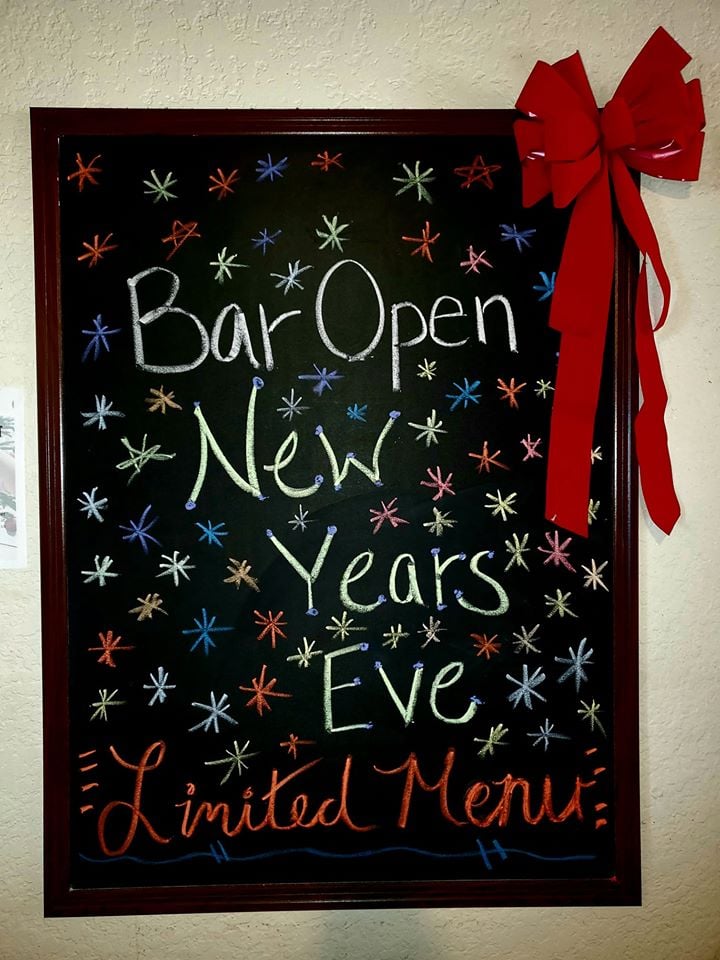 Bar Open
New
Years
Eve
Limited Menu